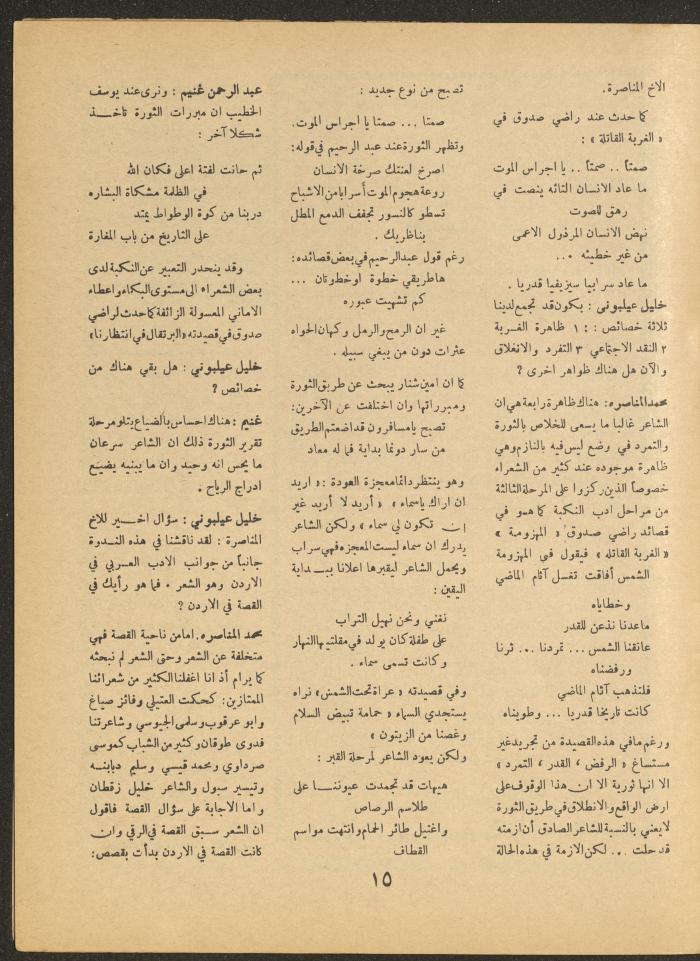 الاخ المناصرة.
كما حدث عند راضي صدوق في
« الغربة القاتلة » :
صمتاً .. صمتاً .. يا اجراس الموت
ما عاد الانسان التائه ينصت في
رهق للصوت
نهض الانسان المرذول الاعمى
من غير خطيئه ...
ما عاد سرابيا سيزيفيا قدريا .
خليل عيلبوني : يكون قد تجمع لدينا
ثلاثة خصائص : : ١ ظاهرة الغربة
٢ النقد الاجتماعي ٣ التفرد والانغلاق
والآن هل هناك ظواهر اخرى ؟
محمد المناصره: هناك ظاهرة رابعة هي ان
الشاعر غالبا ما يسعى للخلاص بالثورة
والتمرد في وضع ليس فيه بالنازم وهي
ظاهرة موجوده عند كثير من الشعراء
خصوصاً الذين ركزوا على المرحلة الثالثة
من مراحل ادب النكبة كما هو في
قصائد راضي صدوق « المهزومة »
« الغربة القاتله » فيقول في المهزومة
الشمس أفاقت تغسل آثام الماضي
وخطاياه
ماعدنا نذعن للقدر
عانقنا الشمس ... تمردنا ... ثرنا
ورفضناه
فلتذهب آثام الماضي
كانت تاريخا قدريا ... وطويناه
ورغم مافي هذه القصيدة من تجريد غير
مستساغ « الرفض ، القدر ، التمرد »
الا انها ثورية الا ان هذا الوقوف على
ارض الواقع والانطلاق في طريق الثورة
لا يعني بالنسبة للشاعر الصادق أن ازمته
قد حلت ... لكن الازمة في هذه الحالة
تصبح من نوع جديد :
صمتا ... صمتا يا اجراس الموت.
وتظهر الثورة عند عبد الرحيم في قوله:
اصرخ لعنتك صرخة الانسان
روعة هجوم الموت أسرابا من الاشباح
تسطو كالنسور تجفف الدمع المطل
بناظريك .
رغم قول عبد الرحيم في بعض قصائده:
ها طريقي خطوة او خطوتان ...
كم تشهيت عبوره
غير ان الرمح والرمل وكهان الخواه
عثرات دون من يبغي سبيله .
كما ان امين شنار يبحث عن طريق الثورة
ومبرراتها وان اختلفت عن الآخرين:
تصبح يا مسافرون قد اضعتم الطريق
من سار دونما بداية فما له معاد
وهو ينتظر دائما معجزة العودة : « اريد
ان اراك يا سماء » « أريد لا أريد غير
ان تكون لي سماء » ولكن الشاعر
يدرك ان سماء ليست المعجزه فهي سراب
ويحمل الشاعر ليقبرها اعلانا ببداية
اليقين :
نغني ونحن نهيل التراب
على طفلة كان يولد في مقلتيها النهار
وكانت تسمى سماء .
وفي قصيدته « عراة تحت الشمس » نراه
يستجدي السماء « حمامة تبيض السلام
وغصنا من الزيتون »
ولكن يعود الشاعر لمرحلة القبر :
هيهات قد تجمدت عيوننا على
طلاسم الرصاص
واغتيل طائر الحمام وانتهت مواسم
القطاف
عبد الرحمن غنيم : ونرى عند يوسف
الخطيب ان مبررات الثورة تأخذ
شكلا آخر :
ثم حانت لفتة اعلى فكان الله
في الظلمة مشكاة البشاره
دربنا من كوة الوطواط يمتد
على التاريخ من باب المغارة
وقد ينحدر التعبير عن النكبة لدى
بعض الشعراء الى مستوى البكاء واعطاء
الاماني المعسولة الزائفة كما حدث لراضي
صدوق في قصيدته « البرتقال في انتظارنا »
خليل عيلبوني : هل بقي هناك من
خصائص ؟
غنيم : هناك احساس بالضياع يتلو مرحلة
تقرير الثورة ذلك ان الشاعر سرعان
ما يحس انه وحيد وان ما يبنيه يضيع
ادراج الرياح .
خليل عيلبوني : سؤال اخير للاخ
المناصرة : لقد ناقشنا في هذه الندوة
جانباً من جوانب الادب العربي في
الاردن وهو الشعر . فما هو رأيك في
القصة في الاردن ؟
محمد المناصره. اما من ناحية القصة فهي
متخلفة عن الشعر وحتى الشعر لم نبحثه
كما يرام أذ انا اغفلنا الكثير من شعرائنا
الممتازين: كحكمت العتيلي وفائز صياغ
وابو عرقوب وسلمى الجيوسي وشاعرتنا
فدوى طوقان وكثير من الشباب كموسى
صرداوي ومحمد قيسي وسليم دبابنه
وتيسير سبول والشاعر خليل زقطان
واما الاجابة على سؤال القصة فاقول
ان الشعر سبق القصة في الرقي وان
كانت القصة في الاردن بدأت بقصص:
١٥